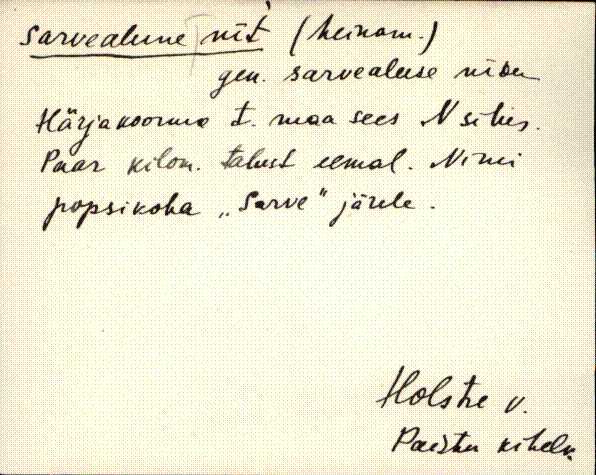 sarvealune nīt (heinam.)
gen. sarvealuse nīdu
Härjakoorma t. maa sees N sihis.
Paar kilom. talust eemal. Nimi
popsikoha „Sarve" järele.
Holstre v.
Paistu kihelk.